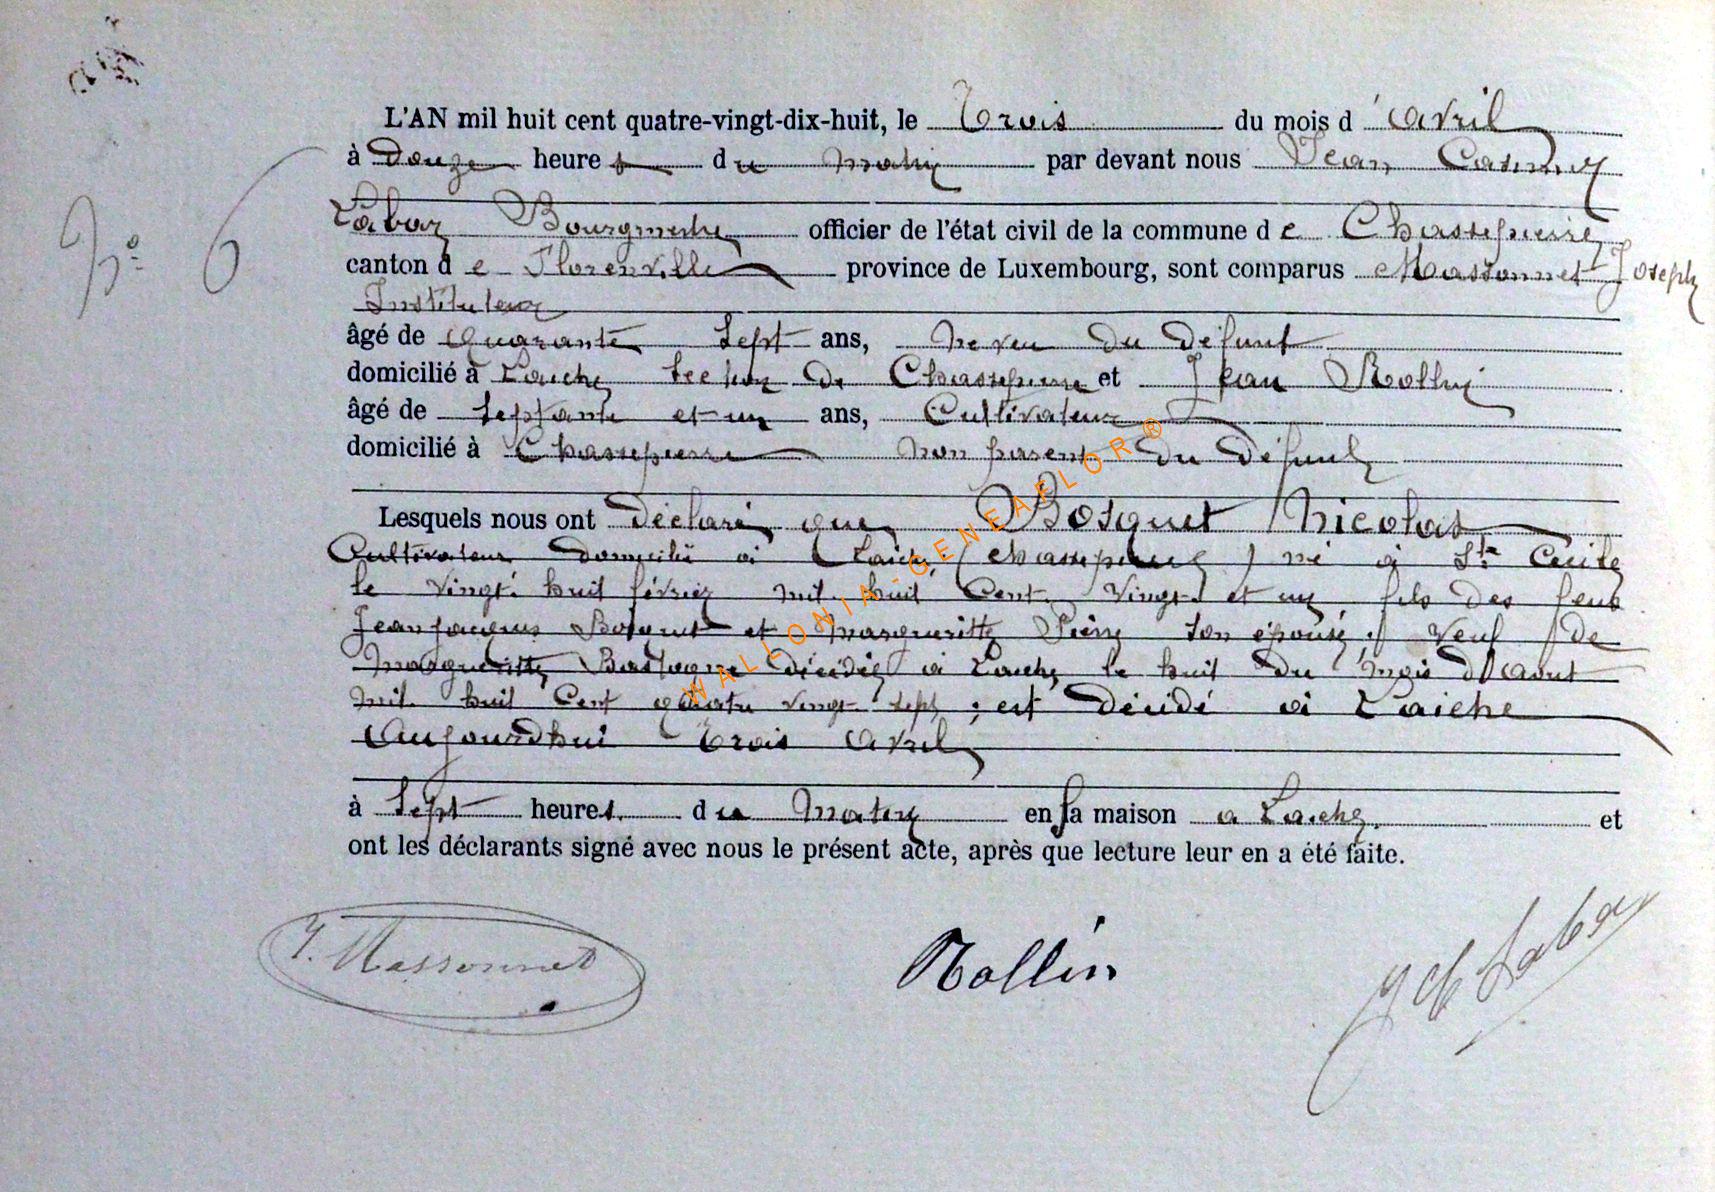 L'AN mil huit cent quatre-vingt-dix-huit, le Trois du mois d'avril
à Douze heures du matin par devant nous Jean Casimir
N° 6
Labar Bourgmestre officier de l'état civil de la commune de Chassepierre
canton de Florenville province de Luxembourg, sont comparus Massonnet Joseph
Instituteur
âgé de quarante sept ans, neveu du défunt
domicilié à Laiche section de Chassepierre et Jean Rollin
âgé de septante et un ans, Cultivateur
domicilié à Chassepierre non parent du défunt
Lesquels nous ont déclaré que Bosquet Nicolas
Cultivateur domicilié à Laiche (Chassepierre) né à Ste Cecile
le vingt huit février mil huit Cent Vingt et un fils des feus
Jean jacques Bosquet et Margueritte Pierre son épouse, Veuf de
Margueritte Bastogne décédée à Laiche le huit du mois d'Aout
mil huit Cent quatre vingt sept ; est décidé à Laiche
Aujourdhui Trois Avril
à sept heures du Matin en sa maison a Laiche et
ont les déclarants signé avec nous le présent acte, après que lecture leur en a été faite.
J. Massonnet Rollin JC Labar
WALLONIA-GENEAFLOR®